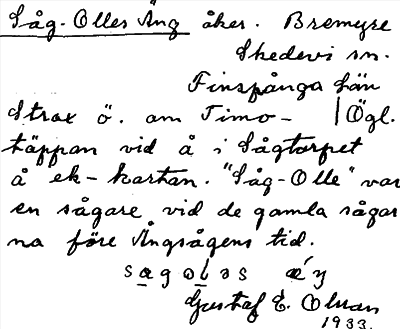 Såg-Olles Äng åker. Bremyre
Skedevi sn.
Finspånga län
Strax ö. om Timo- | Ögl.
täppan vid å i Sågtorpet
å ek-kartan. "Såg-Olle" var
en sågare vid de gamla sågar
na före Ångsågens tid.
sagoləs æ´ŋ
Gustaf E. Olsson
1933.